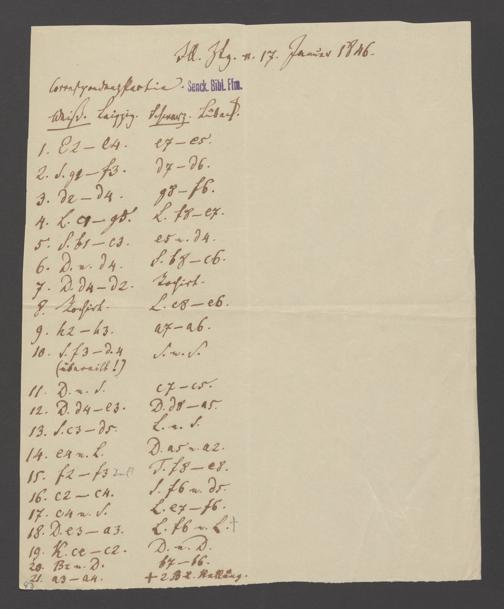 Ztg. v. 17. Januar 1846.
Correspondenzpartie. Senck. Bibl. Ffm.
Weiß. Leipzig. Schwarz. Lübeck.
1. E2—e4. e7—e5.
2. S. g1—f3. d7—d6.
3. d2—d4. g8—f6.
4. L. c1—g5. L. f8—e7.
5. S. b1—c3. e5 n. d4.
6. D. n. d4. S. b8—c6.
7. D. d4—d2. Rochirt.
8. Rochirt. L. c8—e6.
9. h2—h3. a7—a6.
10. S. f3—d4 S. n. S.
(übereilt!)
11. D. n. S. c7—c5.
12. D. d4—e3. D. d8—a5.
13. S. c3—d5. L. n. S.
14. e4 n. L. D. a5 n. a2.
15. f2—f3 T. f8—e8.
16. c2—c4. S. f6 n. d5.
17. c4 n. S. L. e7—f6.
18. D. e3—a3. L. f6 n. L. †
19. K. c1—c2. D. n. D.
20. B2 n. D. b7—b6.
21. a3—a4. + 2 B. Stellung.